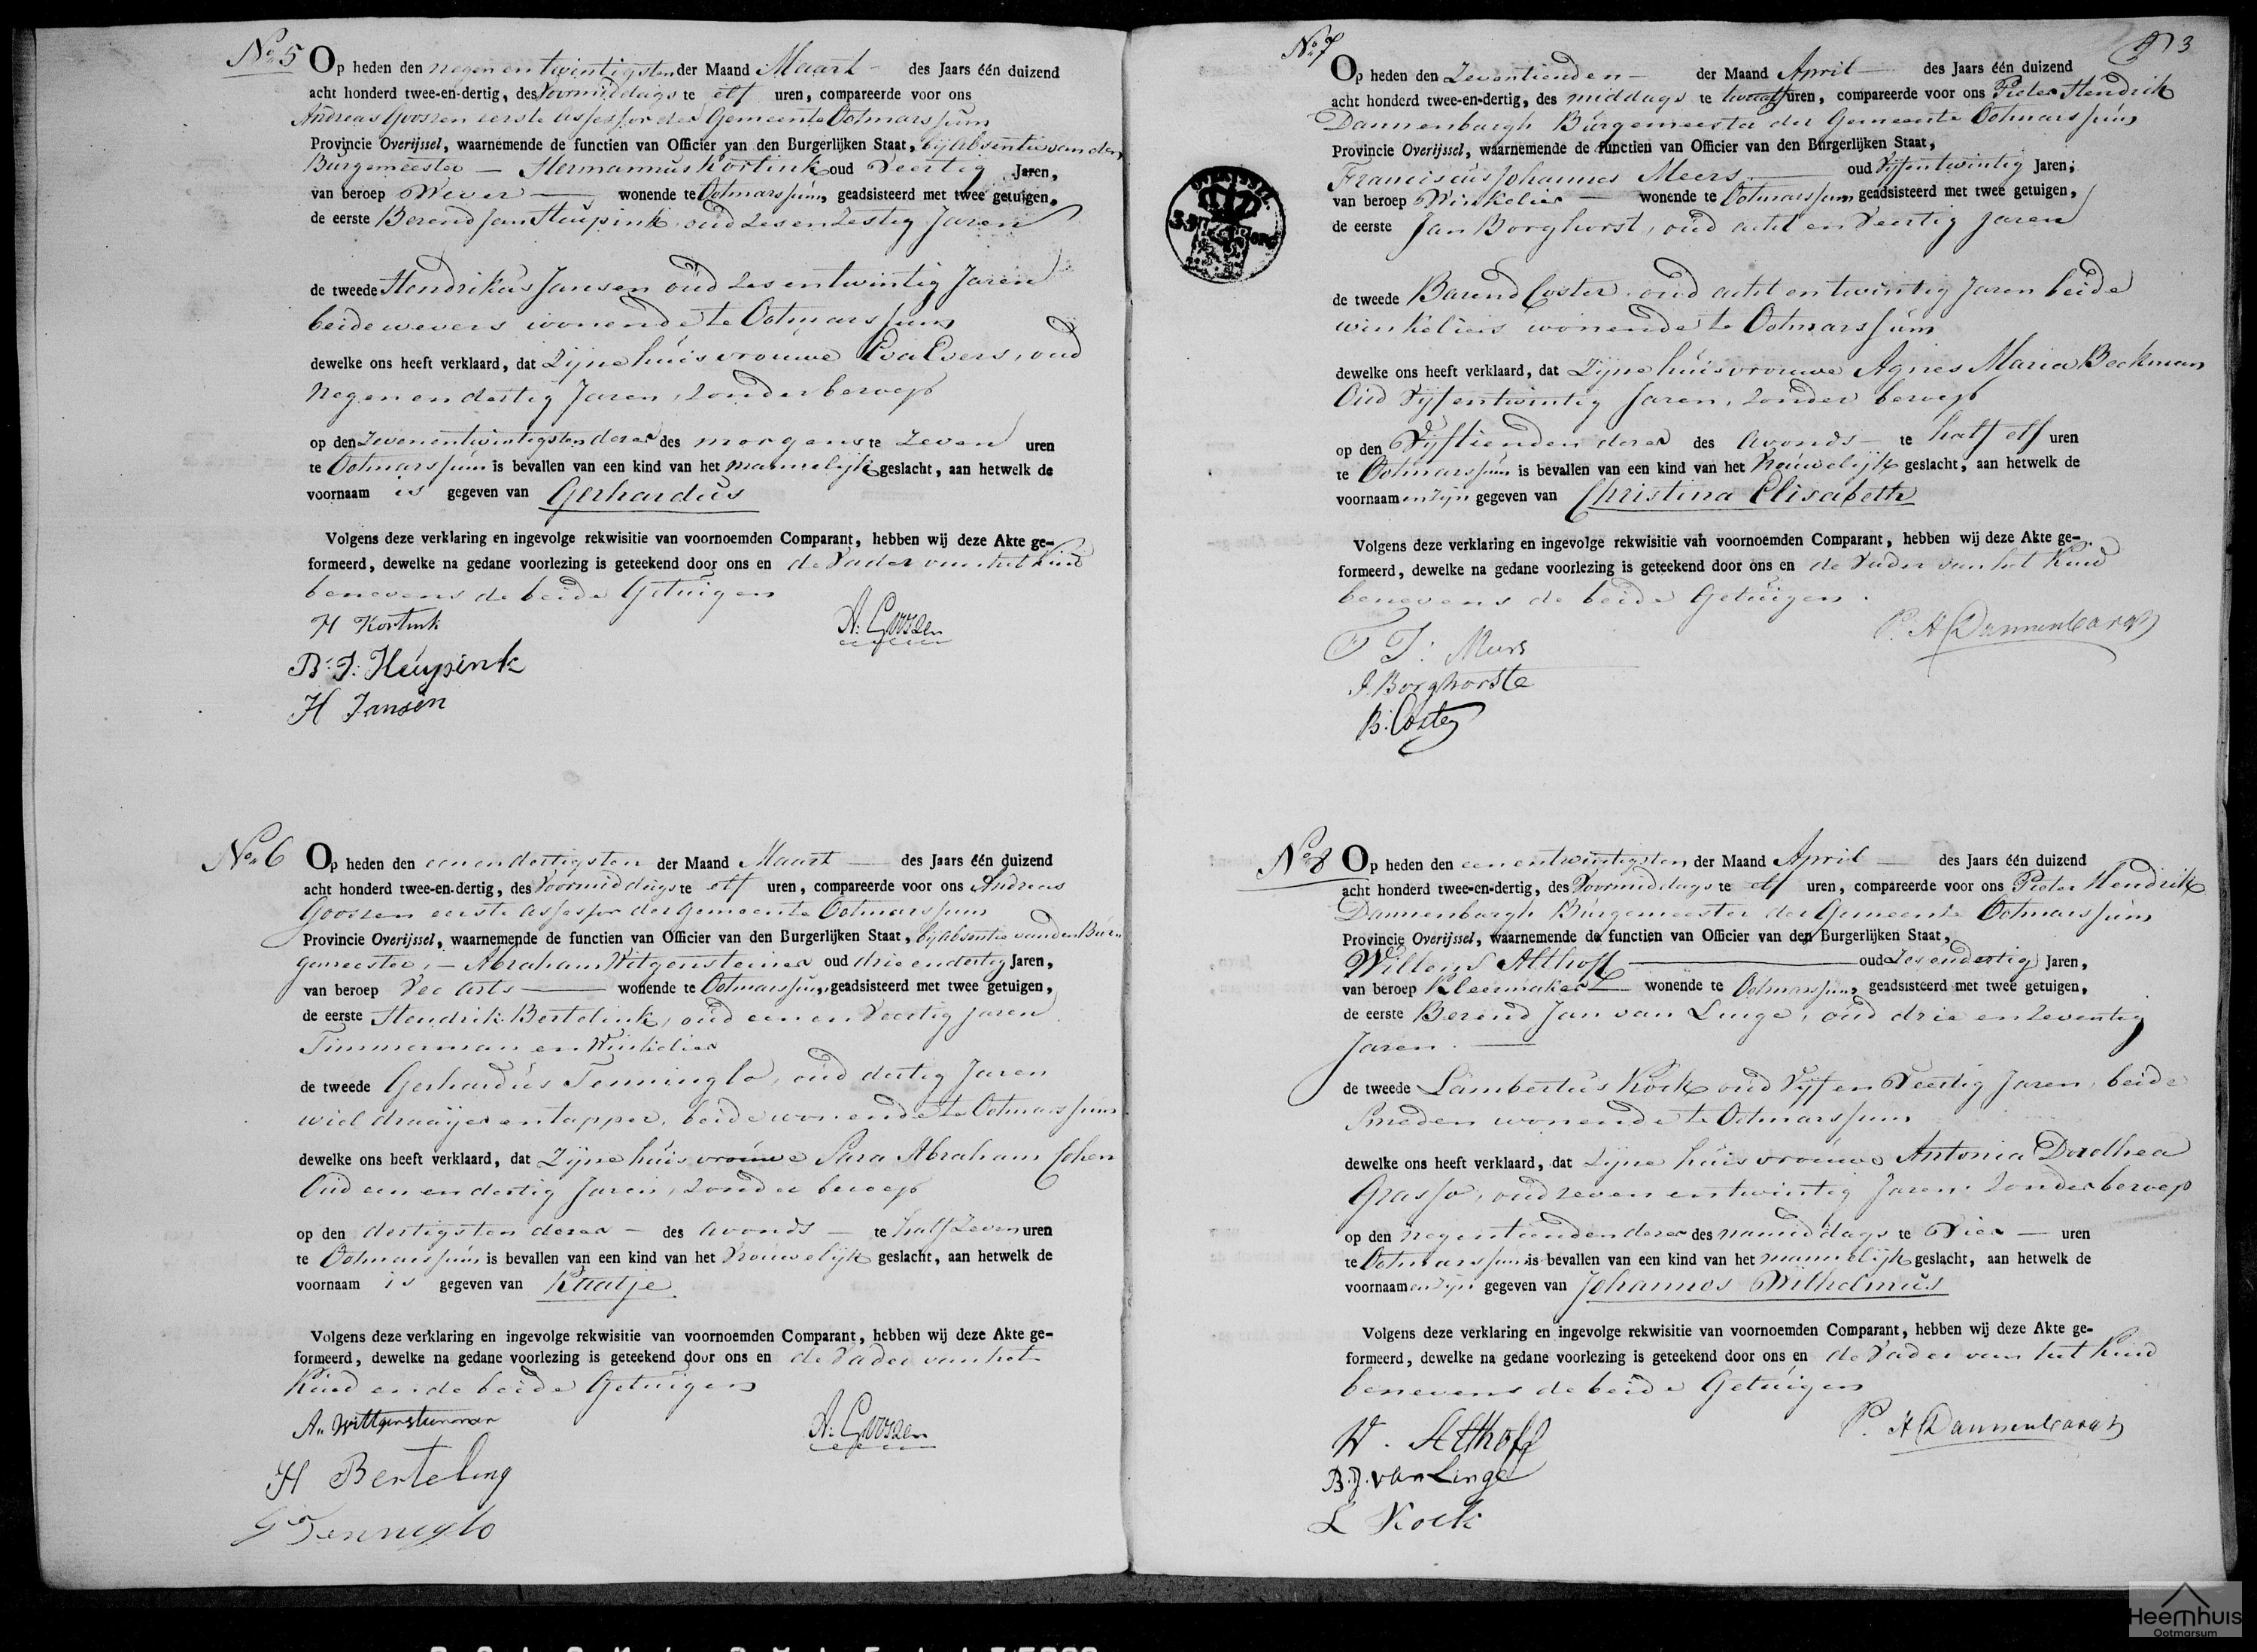 No 5 Op heden den negen en twintigsten der Maand Maart des Jaars één duizend
acht honderd twee-en-dertig, des Voormiddags te elf uren, compareerde voor ons
Andreas Goossen eerste assessor der Gemeente Ootmarssum
Provincie Overijssel, waarnemende de functien van Officier van den Burgerlijken Staat, bij absentie van den
Burgemeester — Hermannus Kortink oud Veertig Jaren,
van beroep Wever wonende te Ootmarssum, geadsisteerd met twee getuigen,
de eerste Berend Jan Heupink, oud zes en zestig Jaren
de tweede Hendrikus Jansen oud zes en twintig Jaren
beide wevers wonende te Ootmarssum
dewelke ons heeft verklaard, dat Zijne huisvrouwe Eva Evers, oud
Negen en dertig Jaren, zonder beroep
op den Zeven en twintigsten dezer des morgens te Zeven uren
te Ootmarssum is bevallen van een kind van het mannelijk geslacht, aan hetwelk de
voornaam is gegeven van Gerhardus
Volgens deze verklaring en ingevolge rekwisitie van voornoemden Comparant, hebben wij deze Akte ge-
formeerd, dewelke na gedane voorlezing is geteekend door ons en de Vader van het Kind
benevens de beide Getuigen
H Kortink A: Goossen
B: J: Heupink
H Jansen
No 6 Op heden den een en dertigsten der Maand Maart des Jaars één duizend
acht honderd twee-en-dertig, des Voormiddags te elf uren, compareerde voor ons Andreas
Goossen eerste assessor der Gemeente Ootmarssum
Provincie Overijssel, waarnemende de functien van Officier van den Burgerlijken Staat, bij absentie van den Bur
gemeester, — Abraham Witgensteiner oud drie en dertig Jaren,
van beroep Vee arts wonende te Ootmarssum, geadsisteerd met twee getuigen,
de eerste Hendrik Bertelink, oud een en Veertig Jaren
Timmerman en Winkelier
de tweede Gerhardus Tenninglo, oud dertig Jaren
wieldraaijer en tapper, beide wonende te Ootmarssum
dewelke ons heeft verklaard, dat Zijne huisvrouwe Sara Abraham Cohen
Oud een en dertig Jaren, zonder beroep
op den dertigsten dezer des avonds te half Zeven uren
te Ootmarssum is bevallen van een kind van het Vrouwelijk geslacht, aan hetwelk de
voornaam is gegeven van Kaatje
Volgens deze verklaring en ingevolge rekwisitie van voornoemden Comparant, hebben wij deze Akte ge-
formeerd, dewelke na gedane voorlezing is geteekend door ons en de Vader van het
Kind en de beide Getuigen
A. Wittgensteiner A: Goossen
H Berteling
G Tenniglo
3
No 7 Op heden den Zeventienden der Maand April des Jaars één duizend
acht honderd twee-en-dertig, des middags te twaalf uren, compareerde voor ons Pieter Hendrik
Dannenbargh Burgemeester der Gemeente Ootmarssum
Provincie Overijssel, waarnemende de functien van Officier van den Burgerlijken Staat,
Franciscus Johannes Meers oud Vijf en twintig Jaren,
van beroep Winkelier wonende te Ootmarssum geadsisteerd met twee getuigen,
de eerste Jan Borghorst, oud acht en Veertig Jaren
de tweede Barend Coster oud acht en twintig Jaren beide
winkeliers wonende te Ootmarssum
dewelke ons heeft verklaard, dat Zijne huisvrouwe Agnes Maria Beckman
Oud Vijf en twintig Jaren, zonder beroep
op den Vijftienden dezer des avonds te half elf uren
te Ootmarssum is bevallen van een kind van het Vrouwelijk geslacht, aan hetwelk de
voornaam en zijn gegeven van Christina Elisabeth
Volgens deze verklaring en ingevolge rekwisitie van voornoemden Comparant, hebben wij deze Akte ge-
formeerd, dewelke na gedane voorlezing is geteekend door ons en de Vader van het Kind
benevens de beide Getuigen.
P. H Dannenbargh
F J: Meers
J. Borghorste
B: Coster
No 8 Op heden den een en twintigsten der Maand April des Jaars één duizend
acht honderd twee-en-dertig, des Voormiddags te elf uren, compareerde voor ons Pieter Hendrik
Dannenbargh Burgemeester der Gemeente Ootmarssum
Provincie Overijssel, waarnemende de functien van Officier van den Burgerlijken Staat,
Willem Althoff oud Zes en dertig Jaren,
van beroep Kleermaker wonende te Ootmarssum, geadsisteerd met twee getuigen,
de eerste Berend Jan van Linge, oud drie en zeventig
Jaren.
de tweede Lambertus Kock oud Vijf en Veertig Jaren, beide
Smeden wonende te Ootmarssum
dewelke ons heeft verklaard, dat Zijne huisvrouwe Antonia Dorothea
Grasso, oud zeven en twintig Jaren, zonder beroep
op den negentienden dezer des namiddags te Vier uren
te Ootmarssum is bevallen van een kind van het mannelijk geslacht, aan hetwelk de
voornaam en zijn gegeven van Johannes Wilhelmus
Volgens deze verklaring en ingevolge rekwisitie van voornoemden Comparant, hebben wij deze Akte ge-
formeerd, dewelke na gedane voorlezing is geteekend door ons en de Vader van het Kind
benevens de beide Getuigen
W. Althoff P. H Dannenbargh
B.J. van Linge
L Kock
Heemhuis
Ootmarsum